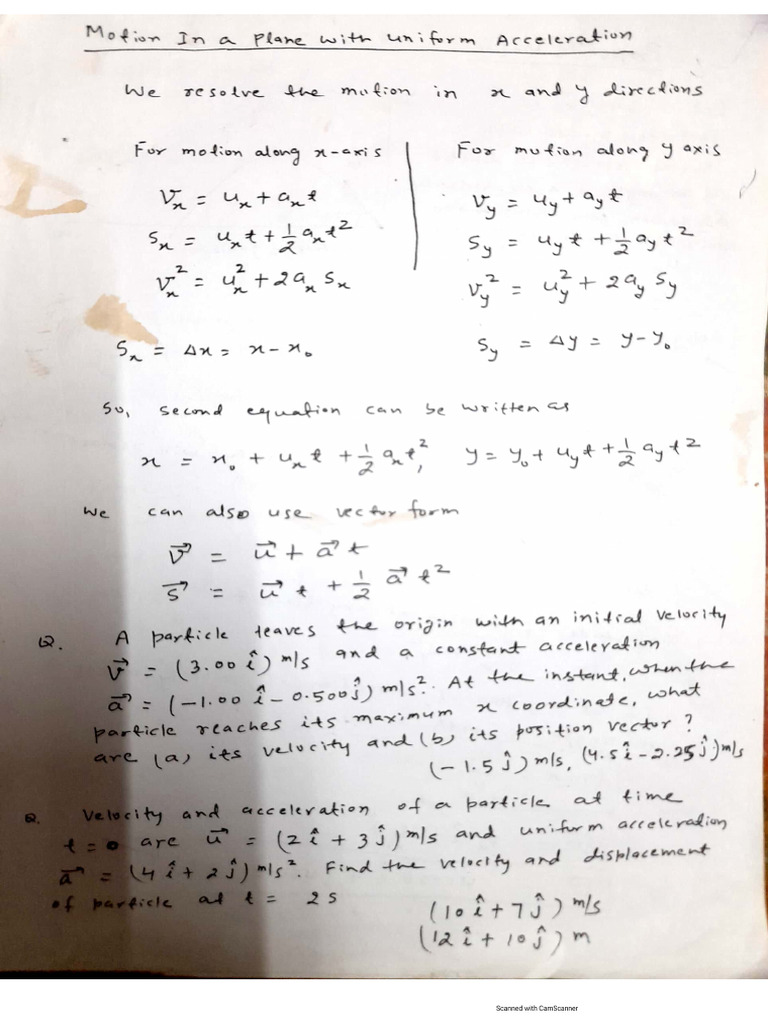 Motion In a Plane with Uniform Acceleration
We resolve the motion in x and y directions
For motion along x-axis
Vₓ = uₓ + aₓt
Sₓ = uₓt + 1/2 aₓt²
Vₓ² = uₓ² + 2aₓ Sₓ
Sₓ = Δx = x - x₀
For motion along y axis
V_y = u_y + a_y t
S_y = u_y t + 1/2 a_y t²
V_y² = u_y² + 2a_y S_y
S_y = Δy = y - y₀
So, second equation can be written as
x = x₀ + uₓt + 1/2 aₓt², y = y₀ + u_y t + 1/2 a_y t²
We can also use vector form
v⃗ = u⃗ + a⃗ t
s⃗ = u⃗ t + 1/2 a⃗ t²
Q. A particle leaves the origin with an initial velocity
v⃗ = (3.00 î) m/s and a constant acceleration
a⃗ = (-1.00 î - 0.500 ĵ) m/s². At the instant, when the
particle reaches its maximum x coordinate, what
are (a) its velocity and (b) its position vector?
(-1.5 ĵ) m/s, (4.5 î - 2.25 ĵ) m/s
Q. Velocity and acceleration of a particle at time
t = 0 are u⃗ = (2 î + 3 ĵ) m/s and uniform acceleration
a⃗ = (4 î + 2 ĵ) m/s². Find the velocity and displacement
of particle at t = 2s
(10 î + 7 ĵ) m/s
(12 î + 10 ĵ) m
Scanned with CamScanner